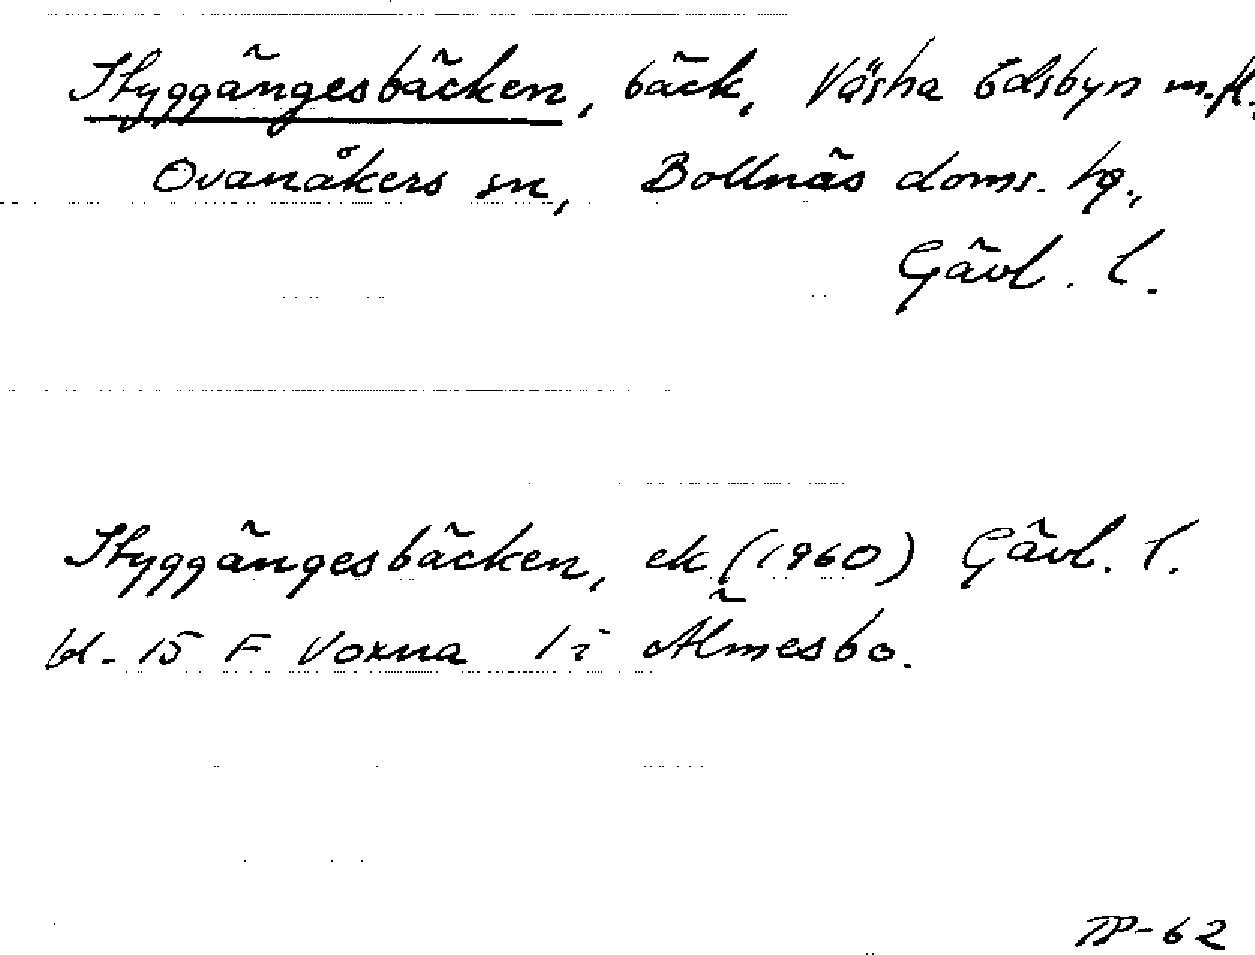 Styggängesbäcken, bäck, Västra Edsbyn m.fl.
Ovanåkers sn, Bollnäs doms. tg.,
Gävl. l.
Styggängesbäcken, ek (1960) Gävl. l.
bl. 15 F Voxna 1 i Älmesbo.
TP-62